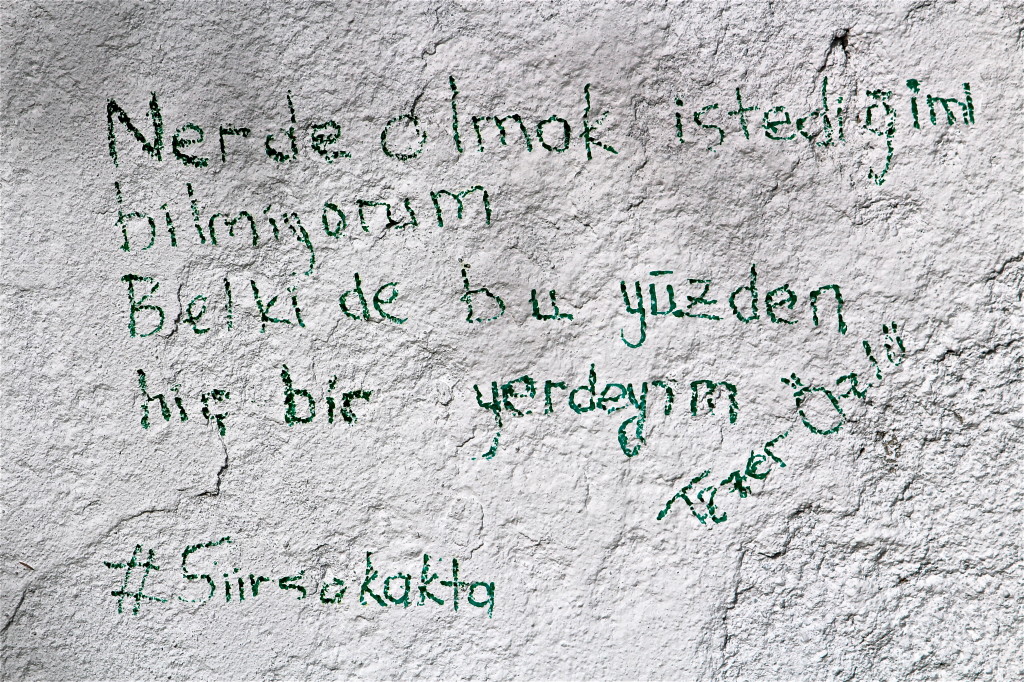 Nerde olmak istediğimi
bilmiyorum
Belki de bu yüzden
hiç bir yerdeyim
Tezer Özlü
#Siirsokakta